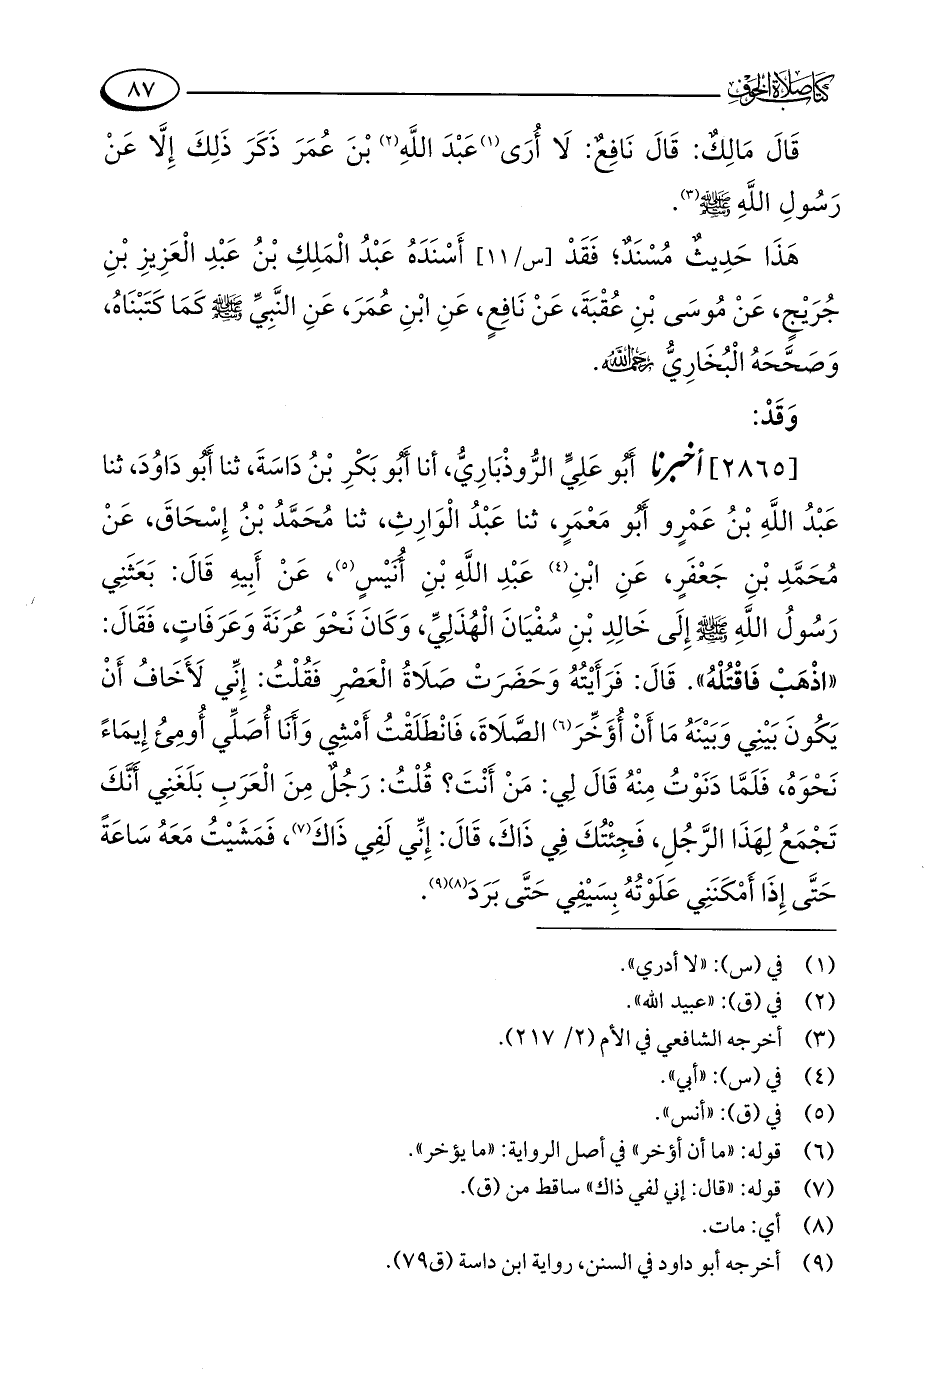 كتاب صلاة الخوف
٨٧
قَالَ مَالِكٌ: قَالَ نَافِعٌ: لَا أُرَى(١) عَبْدَ اللَّهِ(٢) بْنَ عُمَرَ ذَكَرَ ذَلِكَ إِلَّا عَنْ
رَسُولِ اللَّهِ ﷺ(٣).
هَذَا حَدِيثٌ مُسْنَدٌ؛ فَقَدْ [س/١١] أَسْنَدَهُ عَبْدُ الْمَلِكِ بْنُ عَبْدِ الْعَزِيزِ بْنِ
جُرَيْجٍ، عَنْ مُوسَى بْنِ عُقْبَةَ، عَنْ نَافِعٍ، عَنِ ابْنِ عُمَرَ، عَنِ النَّبِيِّ ﷺ كَمَا كَتَبْنَاهُ،
وَصَحَّحَهُ الْبُخَارِيُّ رحمه الله.
وَقَدْ:
[٢٨٦٥] أخبرنا أَبُو عَلِيٍّ الرُّوذْبَارِيُّ، أنا أَبُو بَكْرِ بْنُ دَاسَةَ، ثنا أَبُو دَاوُدَ، ثنا
عَبْدُ اللَّهِ بْنُ عَمْرٍو أَبُو مَعْمَرٍ، ثنا عَبْدُ الْوَارِثِ، ثنا مُحَمَّدُ بْنُ إِسْحَاقَ، عَنْ
مُحَمَّدِ بْنِ جَعْفَرٍ، عَنِ ابْنِ(٤) عَبْدِ اللَّهِ بْنِ أُنَيْسٍ(٥)، عَنْ أَبِيهِ قَالَ: بَعَثَنِي
رَسُولُ اللَّهِ ﷺ إِلَى خَالِدِ بْنِ سُفْيَانَ الْهُذَلِيِّ، وَكَانَ نَحْوَ عُرَنَةَ وَعَرَفَاتٍ، فَقَالَ:
«اذْهَبْ فَاقْتُلْهُ». قَالَ: فَرَأَيْتُهُ وَحَضَرَتْ صَلَاةُ الْعَصْرِ فَقُلْتُ: إِنِّي لَأَخَافُ أَنْ
يَكُونَ بَيْنِي وَبَيْنَهُ مَا أَنْ أُؤَخِّرَ(٦) الصَّلَاةَ، فَانْطَلَقْتُ أَمْشِي وَأَنَا أُصَلِّي أُومِئُ إِيمَاءً
نَحْوَهُ، فَلَمَّا دَنَوْتُ مِنْهُ قَالَ لِي: مَنْ أَنْتَ؟ قُلْتُ: رَجُلٌ مِنَ الْعَرَبِ بَلَغَنِي أَنَّكَ
تَجْمَعُ لِهَذَا الرَّجُلِ، فَجِئْتُكَ فِي ذَاكَ، قَالَ: إِنِّي لَفِي ذَاكَ(٧)، فَمَشَيْتُ مَعَهُ سَاعَةً
حَتَّى إِذَا أَمْكَنَنِي عَلَوْتُهُ بِسَيْفِي حَتَّى بَرَدَ(٨)(٩).
(١) في (س): «لا أدري».
(٢) في (ق): «عبيد الله».
(٣) أخرجه الشافعي في الأم (٢/ ٢١٧).
(٤) في (س): «أبي».
(٥) في (ق): «أنس».
(٦) قوله: «ما أن أؤخر» في أصل الرواية: «ما يؤخر».
(٧) قوله: «قال: إني لفي ذاك» ساقط من (ق).
(٨) أي: مات.
(٩) أخرجه أبو داود في السنن، رواية ابن داسة (ق٧٩).